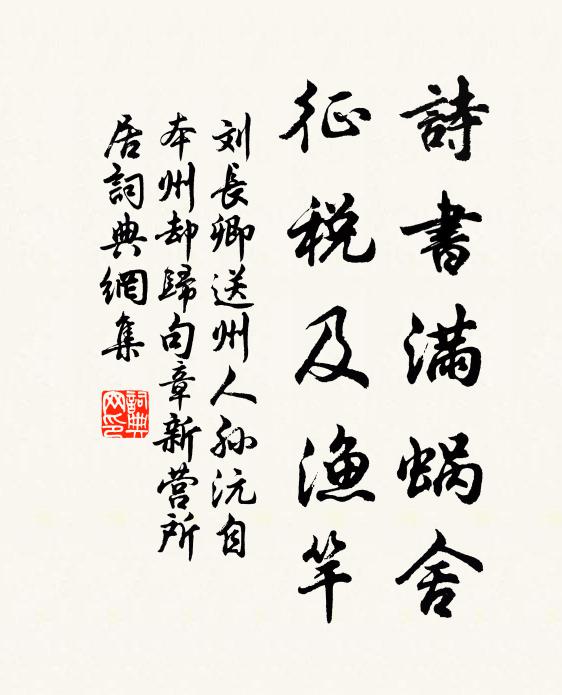 詩書滿蝸舍
征税及漁竿
刘長卿送州人孙沅自
本州却歸句章新营所
居詞典網集
詞典网印